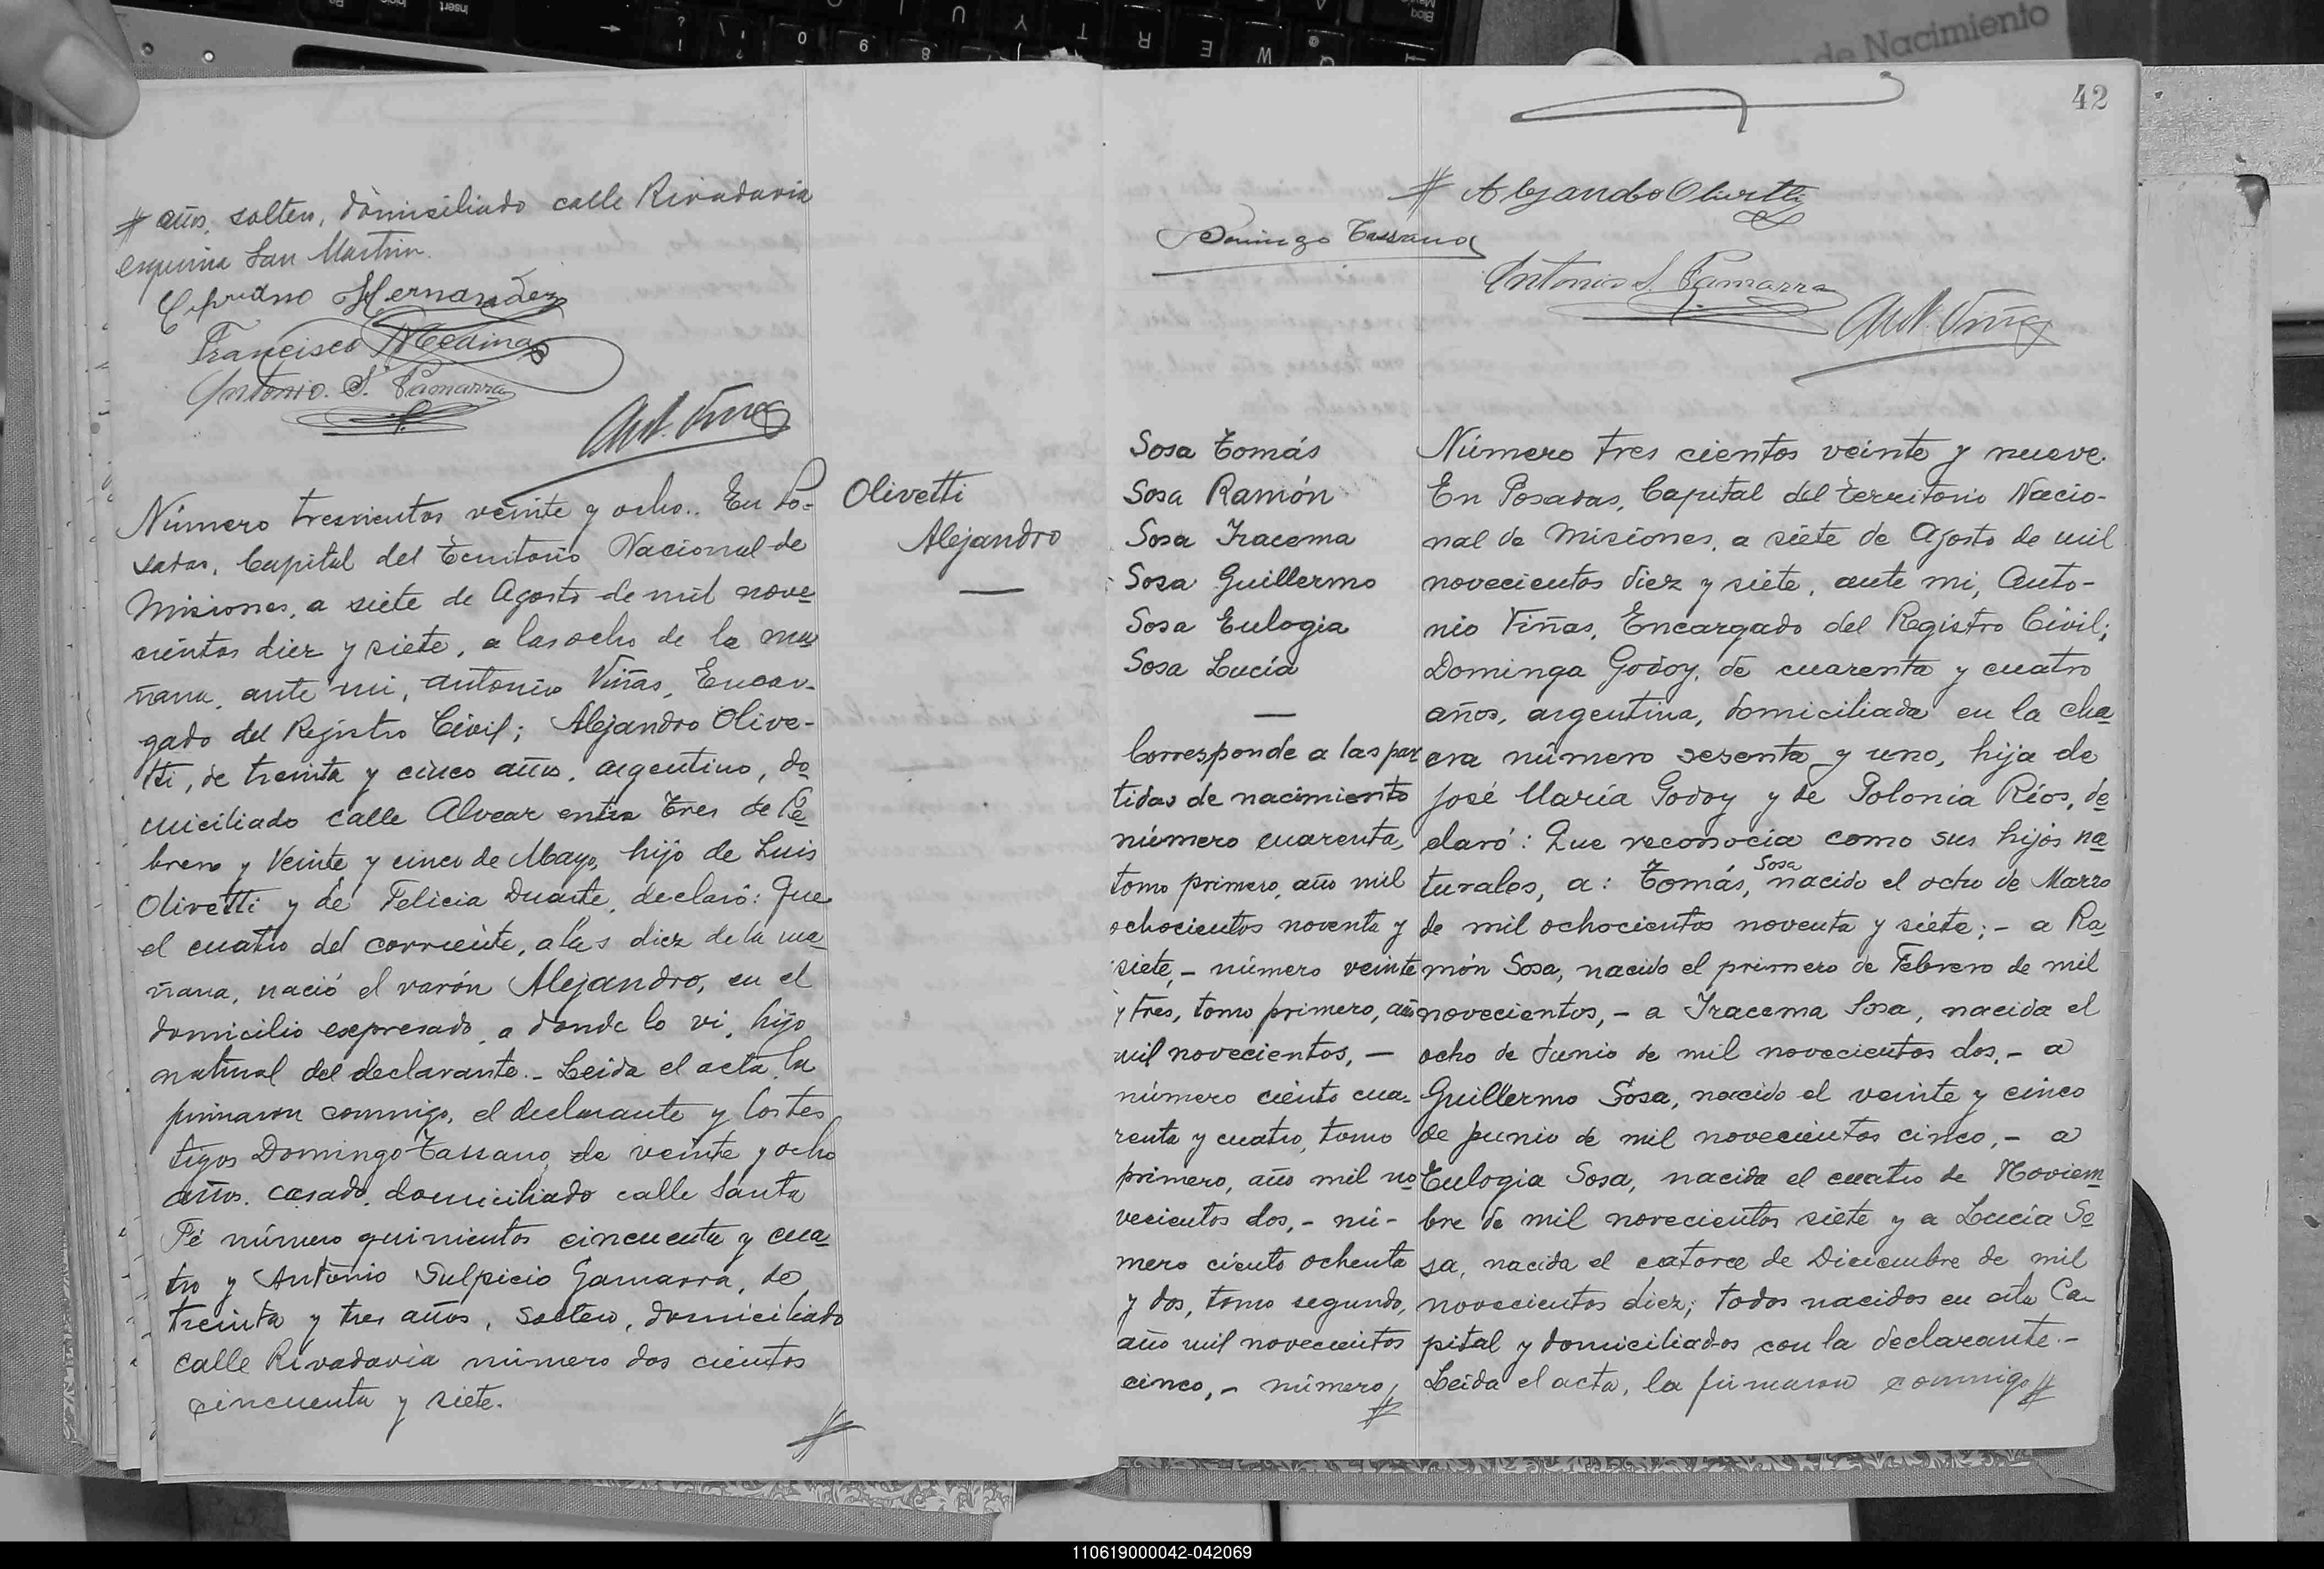 # años, soltero, domiciliado calle Rivadavia
esquina San Martin.
Cipriano Hernandez
Francisco Medina
Antonio. S. Gamarra
Ant. Viñas
Número trescientos veinte y ocho.. En Po-
sadas, Capital del Territorio Nacional de
Misiones, a siete de Agosto de mil nove
cientos diez y siete, a las ocho de la ma
ñana, ante mi, Antonio Viñas, Encar-
gado del Registro Civil; Alejandro Olive-
tti, de treinta y cinco años, argentino, do
miciliado calle Alvear entre Tres de Fe
brero y Veinte y cinco de Mayo, hijo de Luis
Olivetti y de Felicia Duarte, declaró: Que
el cuatro del corriente, a las diez de la ma
ñana, nació el varón Alejandro, en el
domicilio expresado, a donde lo vi, hijo
natural del declarante.- Leida el acta, la
firmaron conmigo, el declarante y los tes
tigos Domingo Tassano, de veinte y ocho
años, casado, domiciliado calle Santa
Fé número quinientos cincuenta y cua
tro y Antonio Sulpicio Gamarra, de
treinta y tres años, soltero, domiciliado
calle Rivadavia número dos cientos
cincuenta y siete.
#
Olivetti
Alejandro
42
# Alejandro Olivetti
Domingo Tassano
Antonio S. Gamarra
Ant. Viñas
Sosa Tomás
Sosa Ramón
Sosa Iracema
Sosa Guillermo
Sosa Eulogia
Sosa Lucía
Corresponde a las par
tidas de nacimiento
número cuarenta,
tomo primero, año mil
ochocientos noventa y
siete, - número veinte
y tres, tomo primero, año
mil novecientos, -
número ciento cua-
renta y cuatro, tomo
primero, año mil no
vecientos dos, - nú-
mero ciento ochenta
y dos, tomo segundo,
año mil novecientos
cinco, - número
#
Número tres cientos veinte y nueve.
En Posadas, Capital del Territorio Nacio-
nal de Misiones, a siete de Agosto de mil
novecientos diez y siete, ante mi, Anto-
nio Viñas, Encargado del Registro Civil;
Dominga Godoy, de cuarenta y cuatro
años, argentina, domiciliada en la cha
cra número sesenta y uno, hija de
José María Godoy y de Polonia Ríos, de
claró: Que reconocía como sus hijos na
Sosa
turales, a: Tomás, nacido el ocho de Marzo
de mil ochocientos noventa y siete; - a Ra
món Sosa, nacido el primero de Febrero de mil
novecientos, - a Iracema Sosa, nacida el
ocho de Junio de mil novecientos dos, - a
Guillermo Sosa, nacido el veinte y cinco
de junio de mil novecientos cinco, - a
Eulogia Sosa, nacida el cuatro de Noviem
bre de mil novecientos siete y a Lucía So
sa, nacida el catorce de Diciembre de mil
novecientos diez; todos nacidos en esta Ca-
pital y domiciliados con la declarante.-
Leída el acta, la firmaron conmigo #
de Nacimiento
110619000042-042069